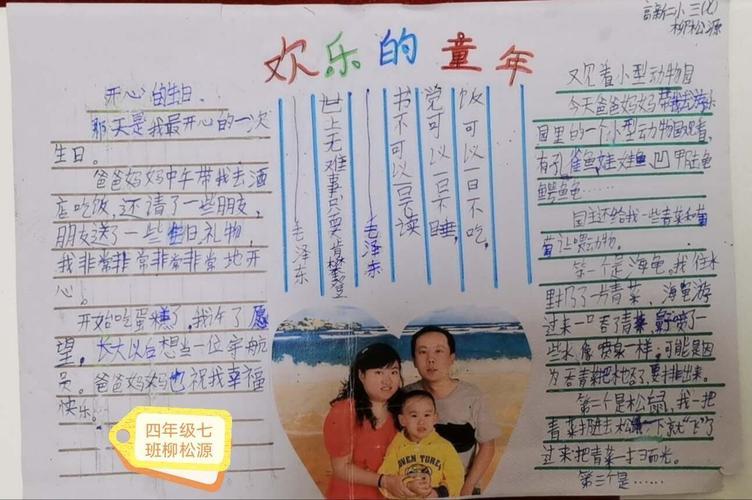 高新仁小三(7)
柳松源
欢乐的童年
开心的生日.
那天是我最开心的一次
生日。
爸爸妈妈中午带我去酒
店吃饭,还请了一些朋友,
朋友送了一些生日礼物,
我非常非常非常非常地开
心。
开始吃蛋糕了,我许了愿
望,长大以后想当一位宇航
员。爸爸妈妈也祝我幸福
快乐。
饭可以一日不吃,
觉可以一日不睡,
书不可以一日不读
——毛泽东
世上无难事只要肯攀登
——毛泽东
观看小型动物园
今天爸爸妈妈带我去游
园里的一个小型动物园观看
有孔雀鱼,娃娃鱼,凹甲陆龟
鳄鱼龟……
园主还给我一些青菜和
让喂动物。
第一个是海龟。我往水
里扔了一片青菜,海龟游
过来一口吞了青菜,喷了一
些水像喷泉一样,可能是因
为吞青菜把水也吞了,要排出来。
第二个是松鼠,我一把
青菜扔进去松鼠一下就"飞"了
过来把青菜一扫而光。
第三个是……
四年级七
班柳松源